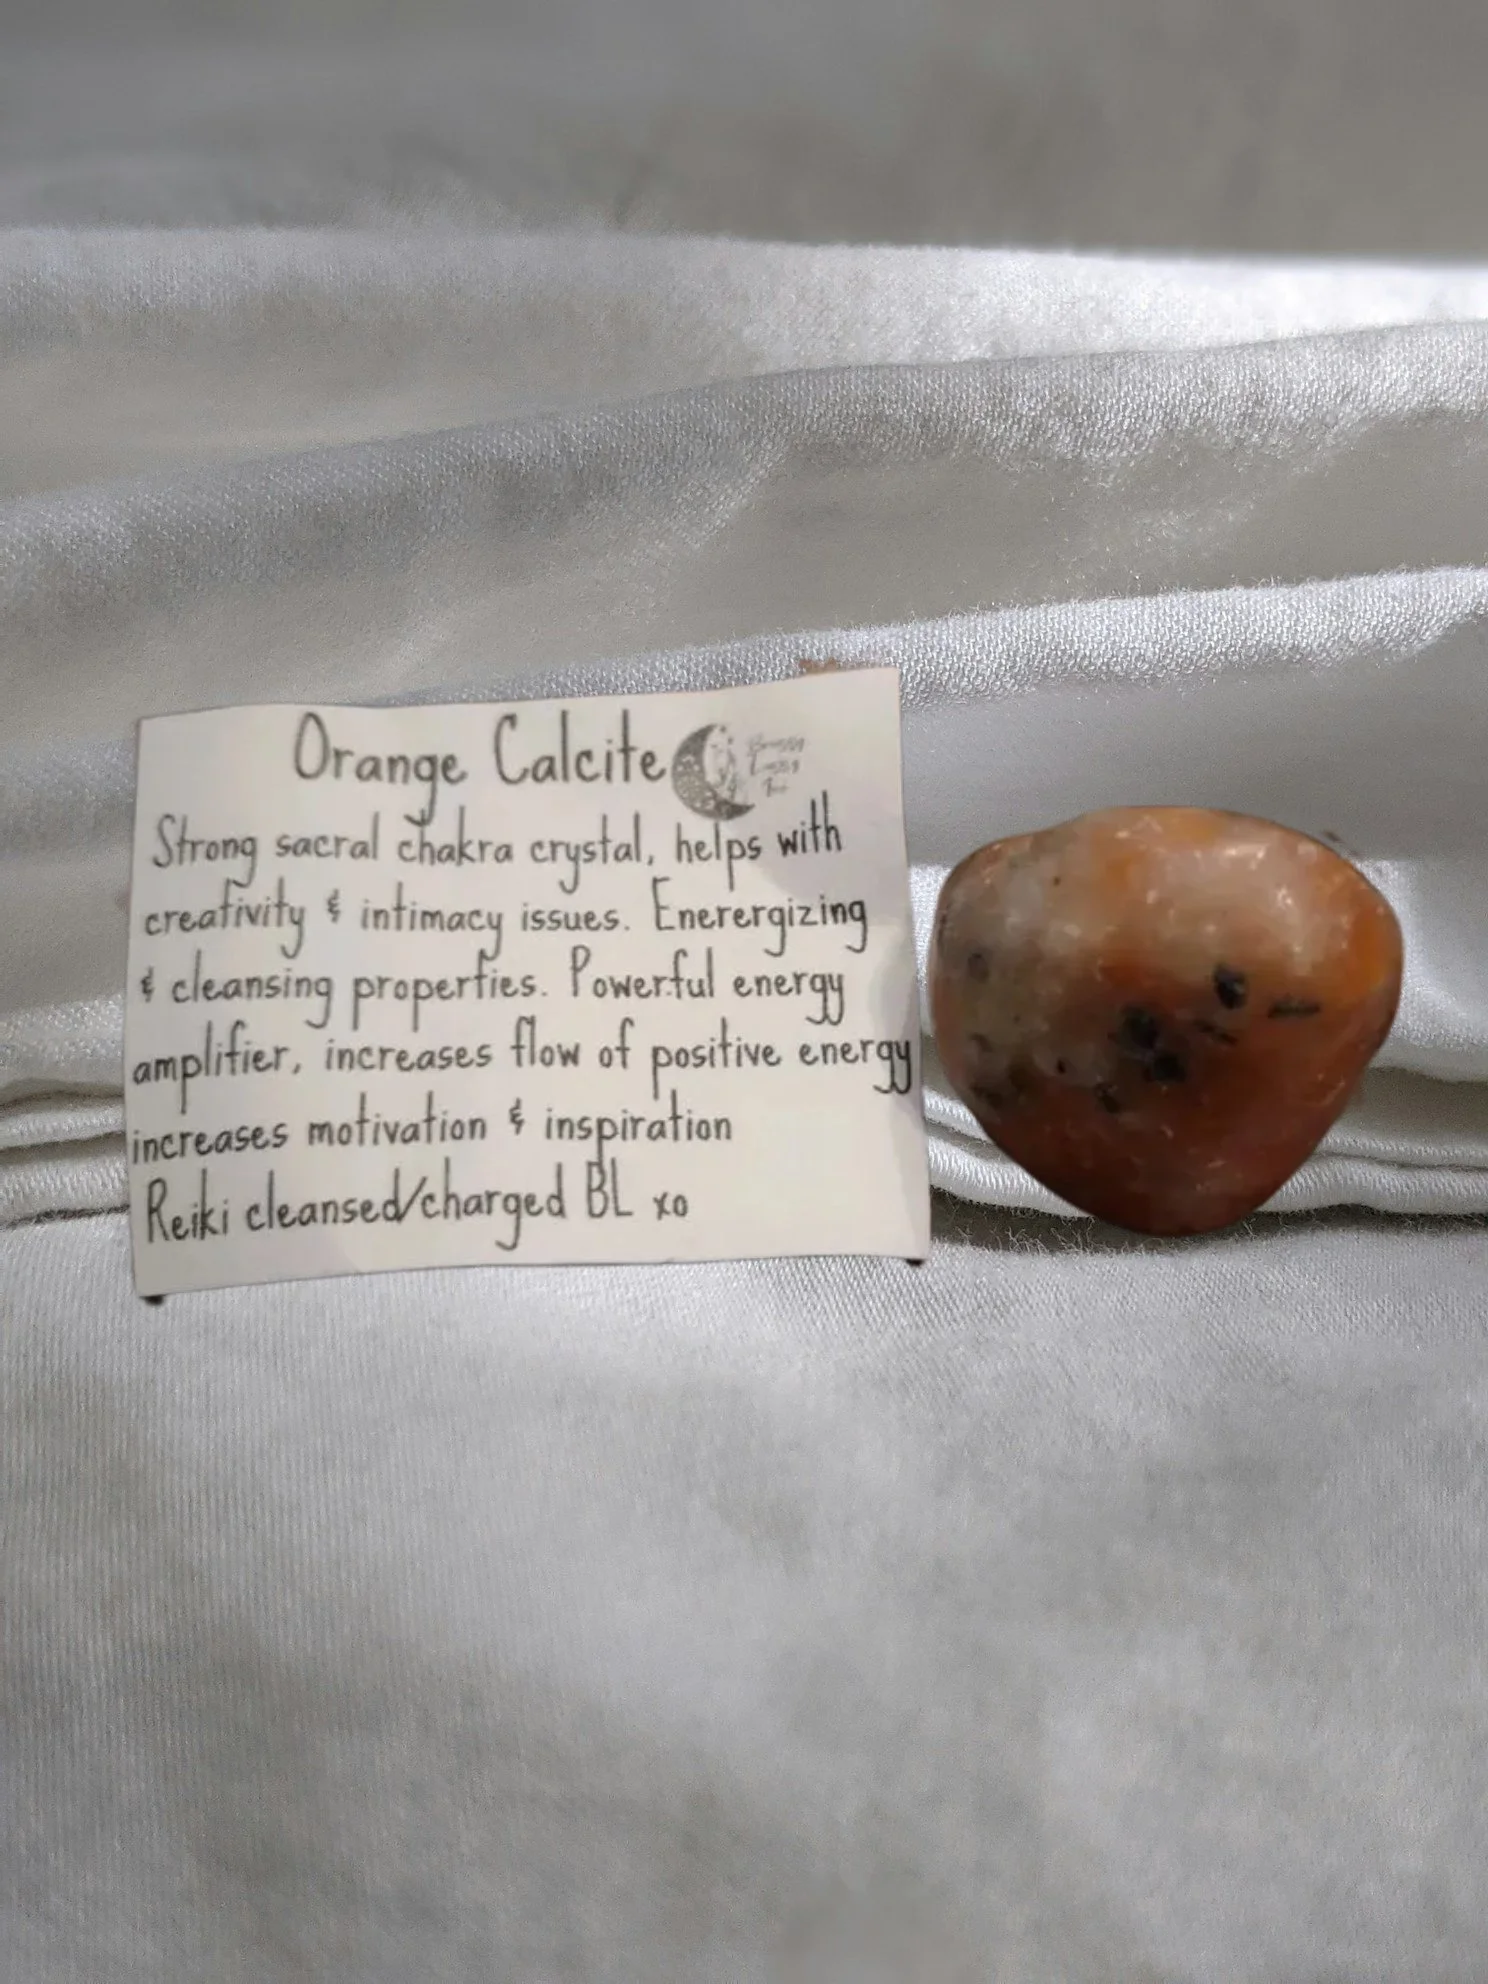 Orange Calcite
Strong sacral chakra crystal, helps with
creativity & intimacy issues. Enerergizing
& cleansing properties. Powerful energy
amplifier, increases flow of positive energy
increases motivation & inspiration
Reiki cleansed/charged BL xo